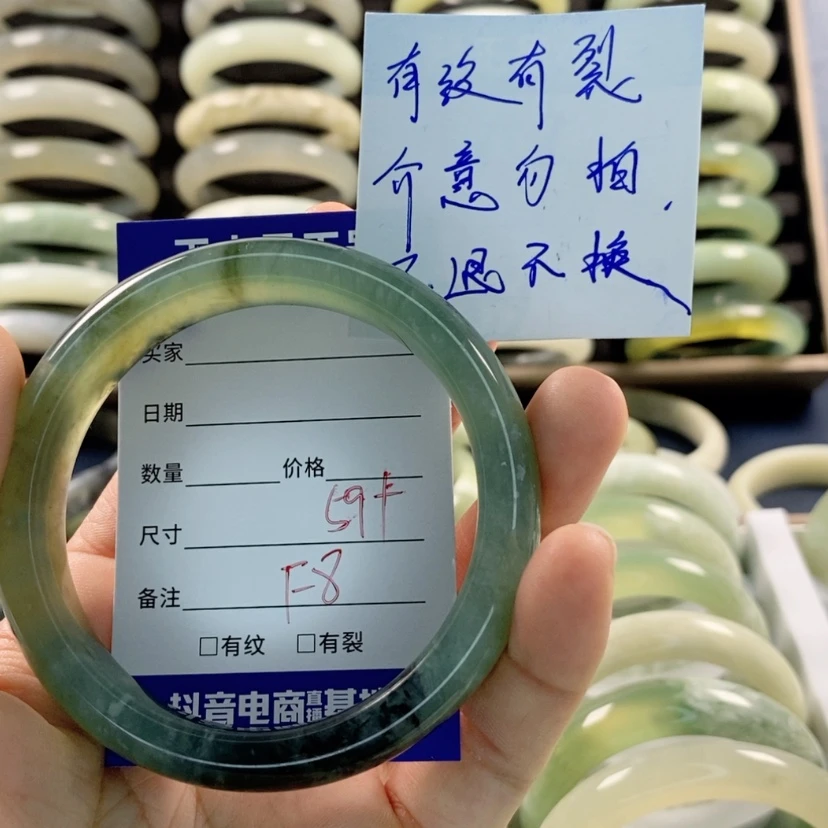 有纹有裂
介意勿拍,
不退不换
买家
日期
数量 价格
尺寸 59卡
备注 F-8
□有纹 □有裂
抖音电商直播基